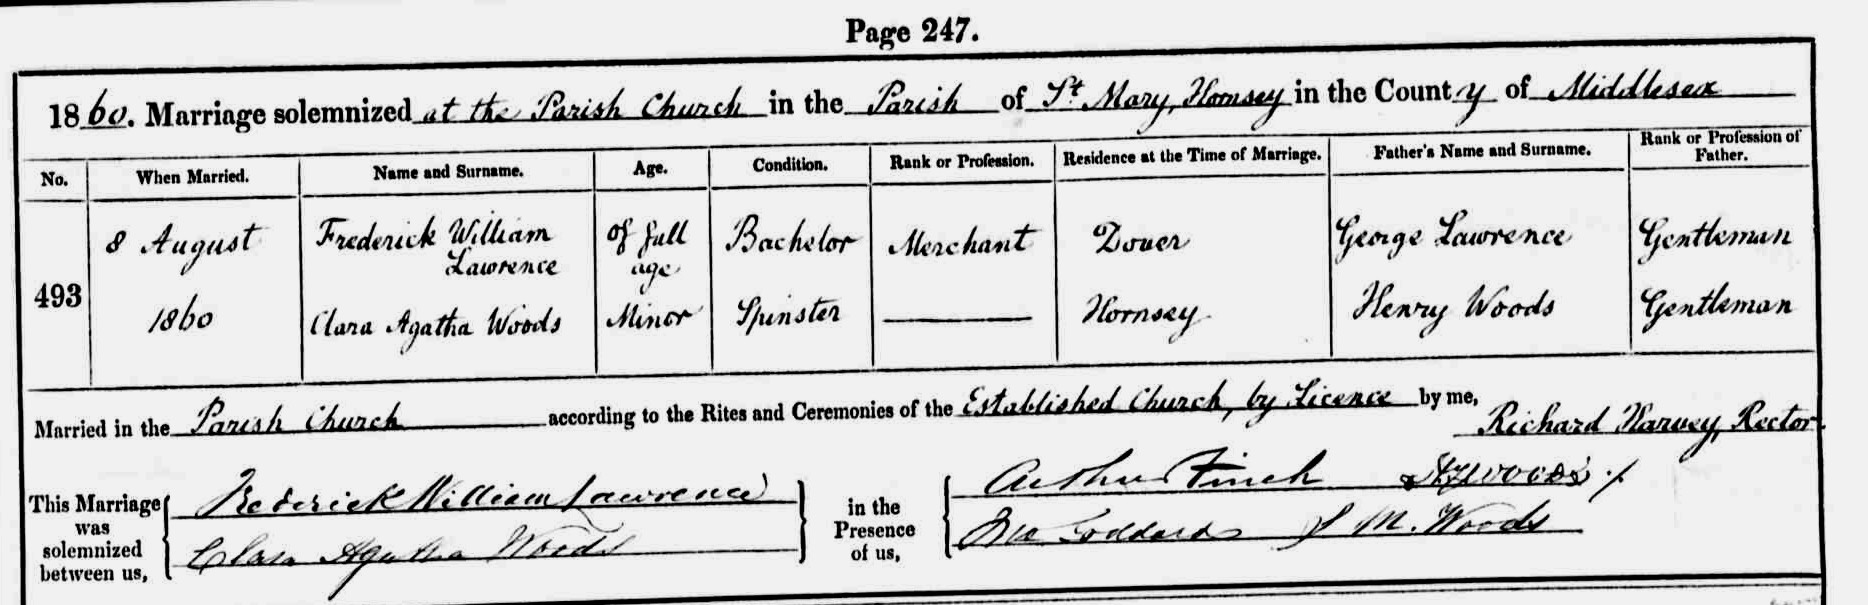 Page 247.
1860. Marriage solemnized at the Parish Church in the Parish of St. Mary, Hornsey in the County of Middlesex
No. When Married. Name and Surname. Age. Condition. Rank or Profession. Residence at the Time of Marriage. Father's Name and Surname. Rank or Profession of Father.
493
8 August 1860
Frederick William Lawrence
of full age
Bachelor
Merchant
Dover
George Lawrence
Gentleman
Clara Agatha Woods
Minor
Spinster
Hornsey
Henry Woods
Gentleman
Married in the Parish Church according to the Rites and Ceremonies of the Established Church, by Licence by me,
Richard Harvey, Rector
This Marriage was solemnized between us,
Frederick William Lawrence
Clara Agatha Woods
in the Presence of us,
Arthur Finch Woods
Goddard M. Woods